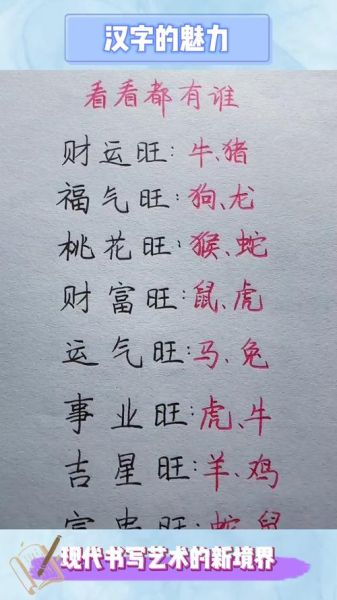 汉字的魅力
看看都有谁
财运旺:牛、猪
福气旺:狗、龙
桃花旺:猴、蛇
财富旺:鼠、虎
运气旺:马、兔
事业旺:虎、牛
吉星旺:羊、鸡
现代书写艺术的新境界